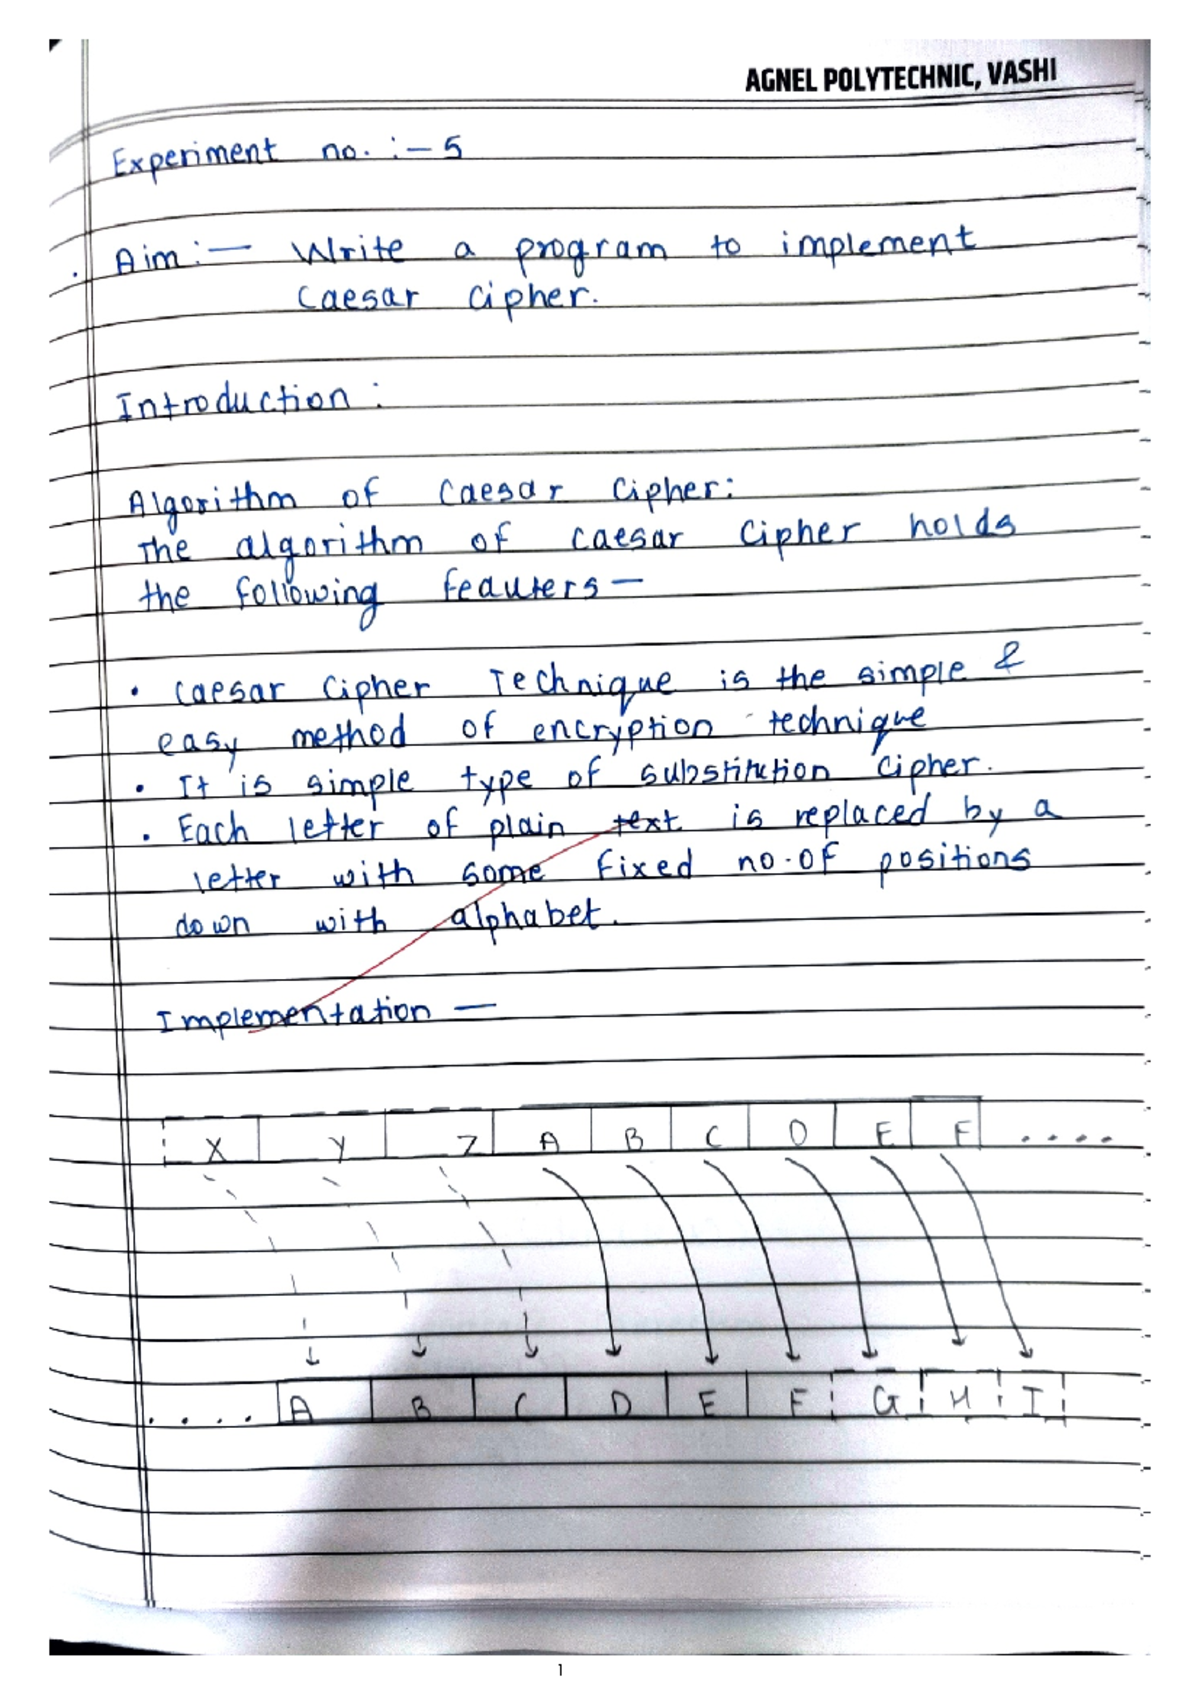 AGNEL POLYTECHNIC, VASHI
Experiment no. :- 5
Aim :- Write a program to implement
Caesar Cipher.
Introduction :
Algorithm of Caesar Cipher:
The algorithm of caesar Cipher holds
the following feauters -
• Caesar Cipher Technique is the simple &
easy method of encryption technique
• It is simple type of substitution Cipher.
• Each letter of plain text is replaced by a
letter with some fixed no. of positions
down with alphabet.
Implementation -
X Y Z A B C D E F ....
.... A B C D E F G H I
1